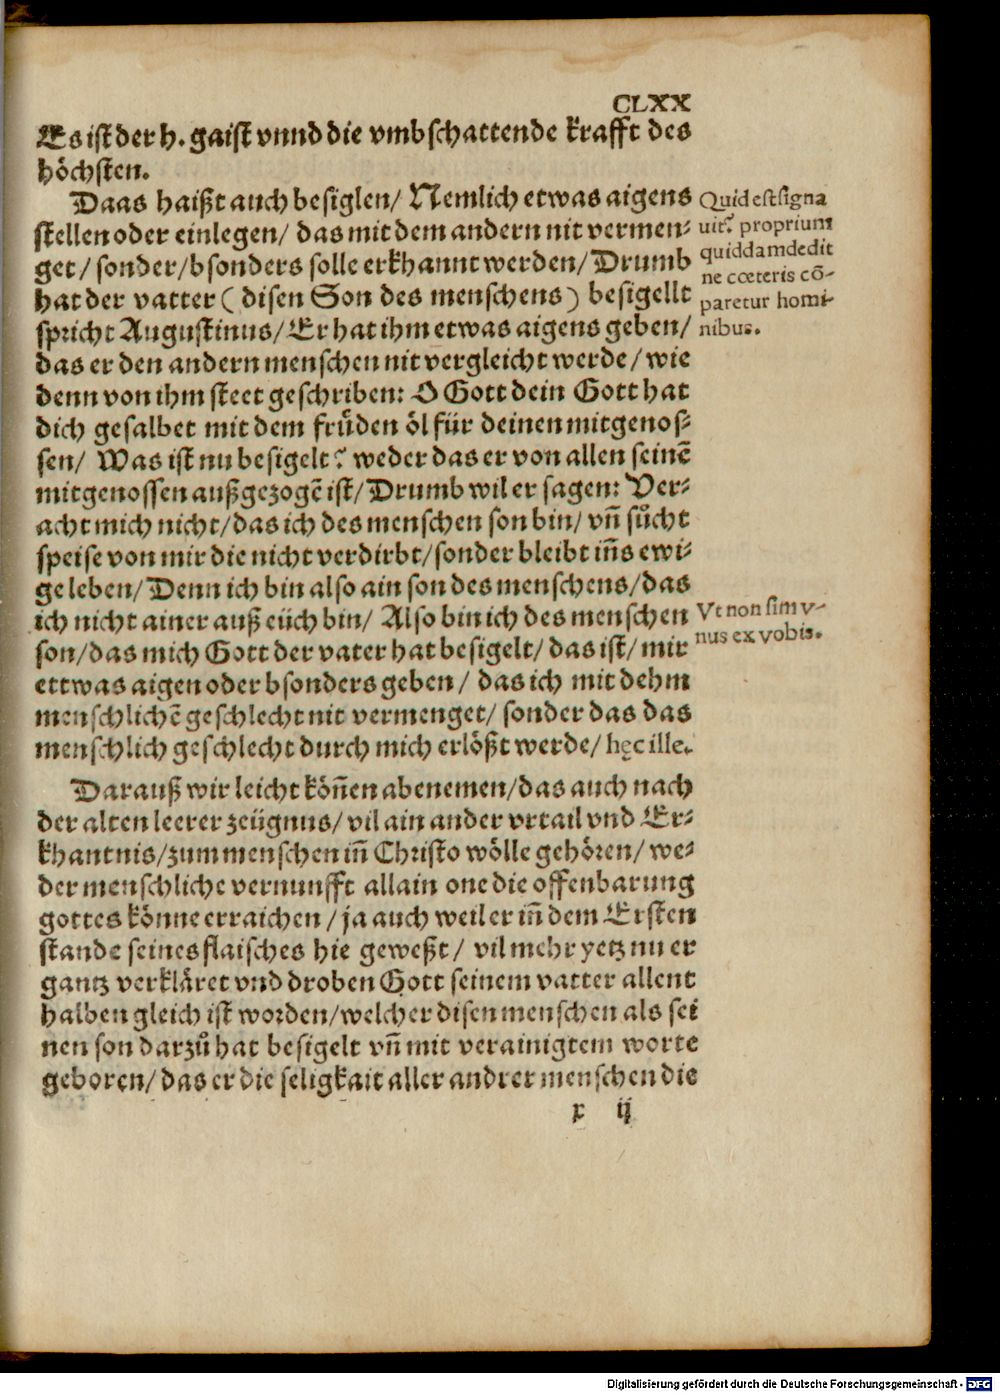 CLXX
Es ist der h. gaist vnnd die vmbschattende krafft des
höchsten.
Daas haißt auch besiglen/ Nemlich etwas aigens
stellen oder einlegen/ das mit dem andern nit vermen⸗
get/ sonder/ bsonders solle erkhannt werden/ Drumb
hat der vatter ( disen Son des menschens ) besigellt
spricht Augustinus/ Er hat ihm etwas aigens geben/
das er den andern menschen nit vergleicht werde/ wie
denn von ihm steet geschriben: O Gott dein Gott hat
dich gesalbet mit dem frůden öl für deinen mitgenos⸗
sen/ Was ist nu besigelt? weder das er von allen seinē
mitgenossen außgezogē ist/ Drumb wil er sagen: Ver⸗
acht mich nicht/ das ich des menschen son bin/ vn̄ sůcht
speise von mir die nicht verdirbt/ sonder bleibt in̄s ewi⸗
ge leben/ Denn ich bin also ain son des menschens/ das
ich nicht ainer auß eüch bin/ Also bin ich des menschen
son/ das mich Gott der vater hat besigelt/ das ist/ mir
ettwas aigen oder bsonders geben/ das ich mit dehm
menschlichē geschlecht nit vermenget/ sonder das das
menschlich geschlecht durch mich erlößt werde/ hęc ille.
Quid est signa
uit? proprium
quiddam dedit
ne cœteris cō-
paretur homi-
nibus.
Vt non sim v-
nus ex vobis.
Darauß wir leicht kön̄en abenemen/ das auch nach
der alten leerer zeügnus/ vil ain ander vrtail vnd Er⸗
khantnis/ zum menschen in̄ Christo wölle gehören/ we⸗
der menschliche vernunfft allain one die offenbarung
gottes könne erraichen/ ja auch weil er in̄ dem Ersten
stande seines flaisches hie geweßt/ vil mehr yetz nu er
gantz verkläret vnd droben Gott seinem vatter allent
halben gleich ist worden/ welcher disen menschen als sei
nen son darzů hat besigelt vn̄ mit verainigtem worte
geboren/ das er die seligkait aller andrer menschen die
x ij
Digitalisierung gefördert durch die Deutsche Forschungsgemeinschaft - DFG